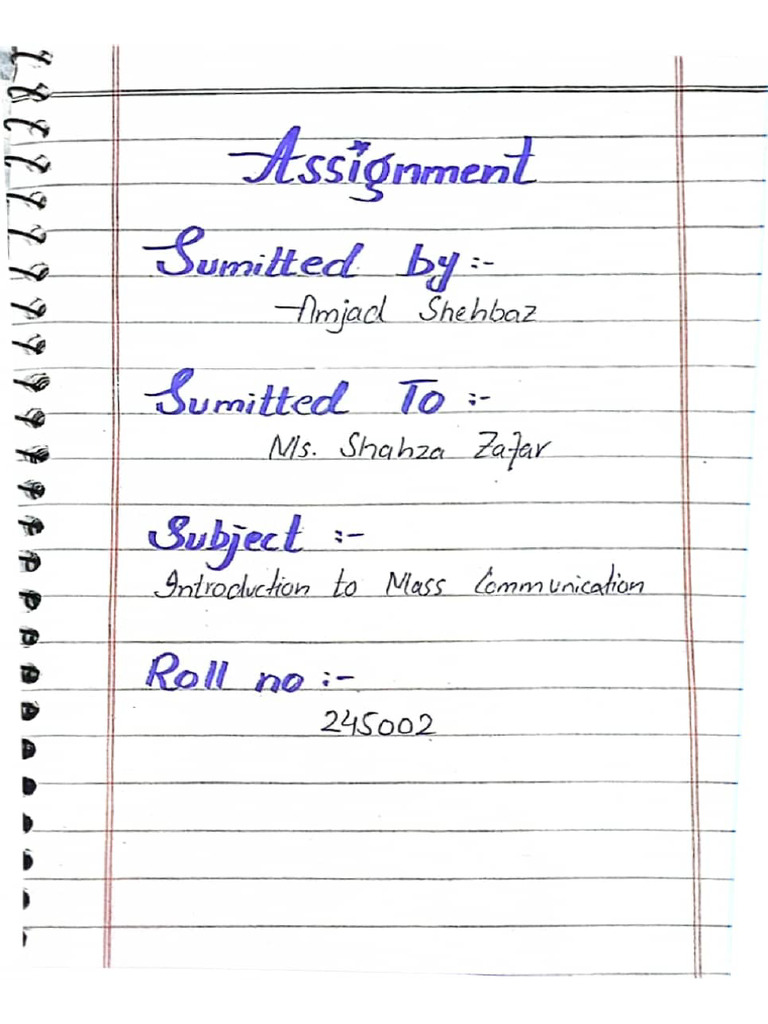 Assignment
Sumitted by :-
Amjad Shehbaz
Sumitted To :-
Ms. Shahza Zafar
Subject :-
Introduction to Mass Communication
Roll no :-
245002